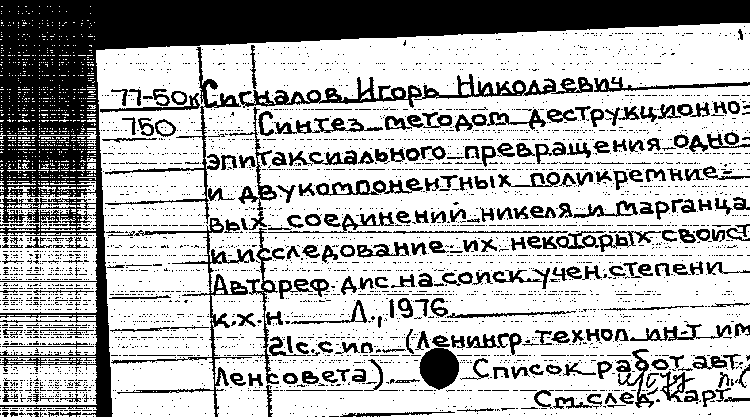 77-50к Сигналов, Игорь Николаевич.
750 Синтез методом деструкционно-
эпитаксиального превращения одно-
и двукомпонентных поликремние-
вых соединений никеля и марганца
и исследование их некоторых свойст
Автореф. дис. на соиск. учен. степени
к.х.н. Л., 1976.
21с. с ил. (Ленингр. технол. ин-т им
Ленсовета). Список работ авт.:
См. след. карт